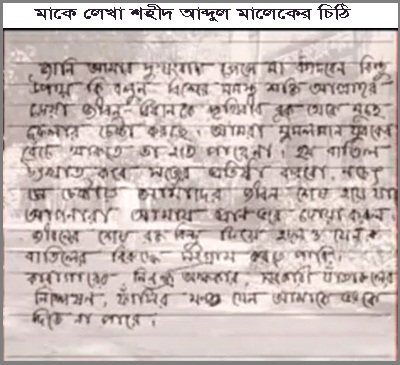 মাকে লেখা শহীদ আব্দুল মালেকের চিঠি
জানি আমার দুঃসংবাদ পেলে মা কাঁদবেন কিন্তু
উপায় কি বলুন বিশ্বের সমস্ত শক্তি আল্লাহর
দেয়া জীবন-বিধানকে পৃথিবীর বুক থেকে মুছে
ফেলার চেষ্টা করছে। আমরা মুসলমান যুবকেরা
বেঁচে থাকতে তা হতে পারে না। হয় বাতিল
উৎখাত করে সত্যের প্রতিষ্ঠা করবো, নচেৎ
সে চেষ্টায় আমাদের জীবন শেষ হয়ে যাবে
আপনারা আমায় প্রাণ ভরে দোয়া করুন,
জীবনের শেষ রক্ত বিন্দু দিয়ে হলেও যেন
বাতিলের বিরুদ্ধে সংগ্রাম করতে পারি।
কারাগারের নিরন্ধ্র অন্ধকার, সরকারী যাঁতাকলের
নিষ্পেষণ, ফাঁসির মঞ্চও যেন আমাকে ভড়কে
দিতে না পারে।